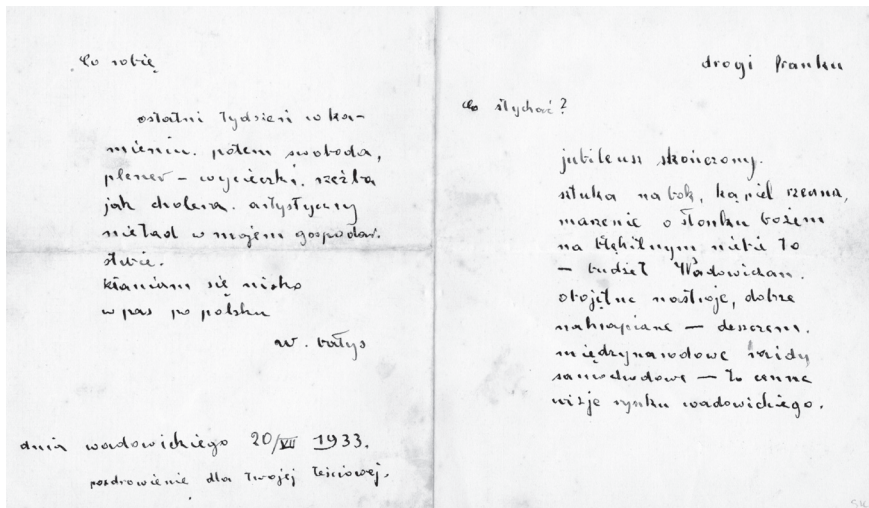 Co robię
ostatni tydzień w ka-
mieniu. potem swoboda,
plener – wycieczki. rzeźba
jak cholera. artystyczny
nieład w mojem gospodar.
stwie.
kłaniam się nisko
w pas po polsku
w. bałys
dnia wadowickiego 20/VII 1933.
pozdrowienie dla twojej teściowej.
drogi Franku
Co słychać?
jubileusz skończony.
sztuka na bok, kąpiel rzeczna,
marzenie o słonku bożem
na błękitnym niebie to
– budżet Wadowiczan.
obojętne nastroje, dobrze
nakrapiane – deszczem.
międzynarodowe rajdy
samochodowe – to cenne
wizje rynku wadowickiego.